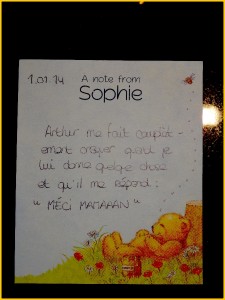 1.01.14 A note from
Sophie
Arthur me fait complèt-
ement craquer quand je
lui donne quelque chose
et qu'il me répond :
" MÉCI MAMAAAN "